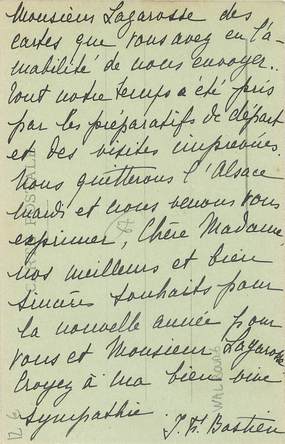 Monsieur Lagarosse des
cartes que vous avez eu l'a-
mabilité de nous envoyer.
Tout notre temps a été pris
par les préparatifs de départ
et des visites imprévues.
Nous quitterons l'Alsace
mardi et nous venons vous
exprimer, Chère Madame
nos meilleurs et bien
sincères souhaits pour
la nouvelle année pour
vous et Monsieur Lagarosse
Croyez à ma bien vive
sympathie.
J. H. Bastien